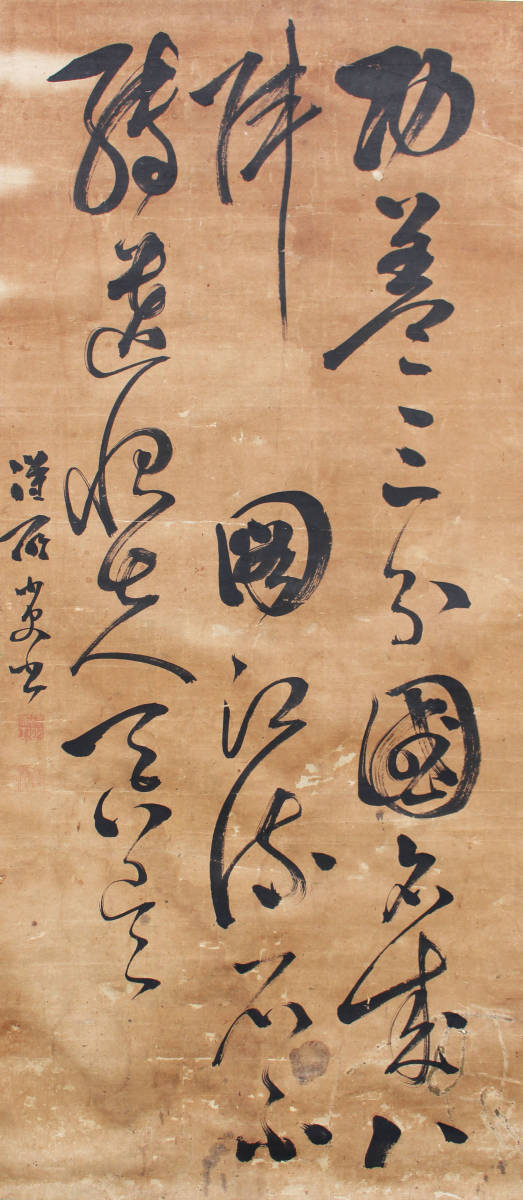 功蓋三分國名成八
陣圖江流石不
轉遺恨失吞吳
書